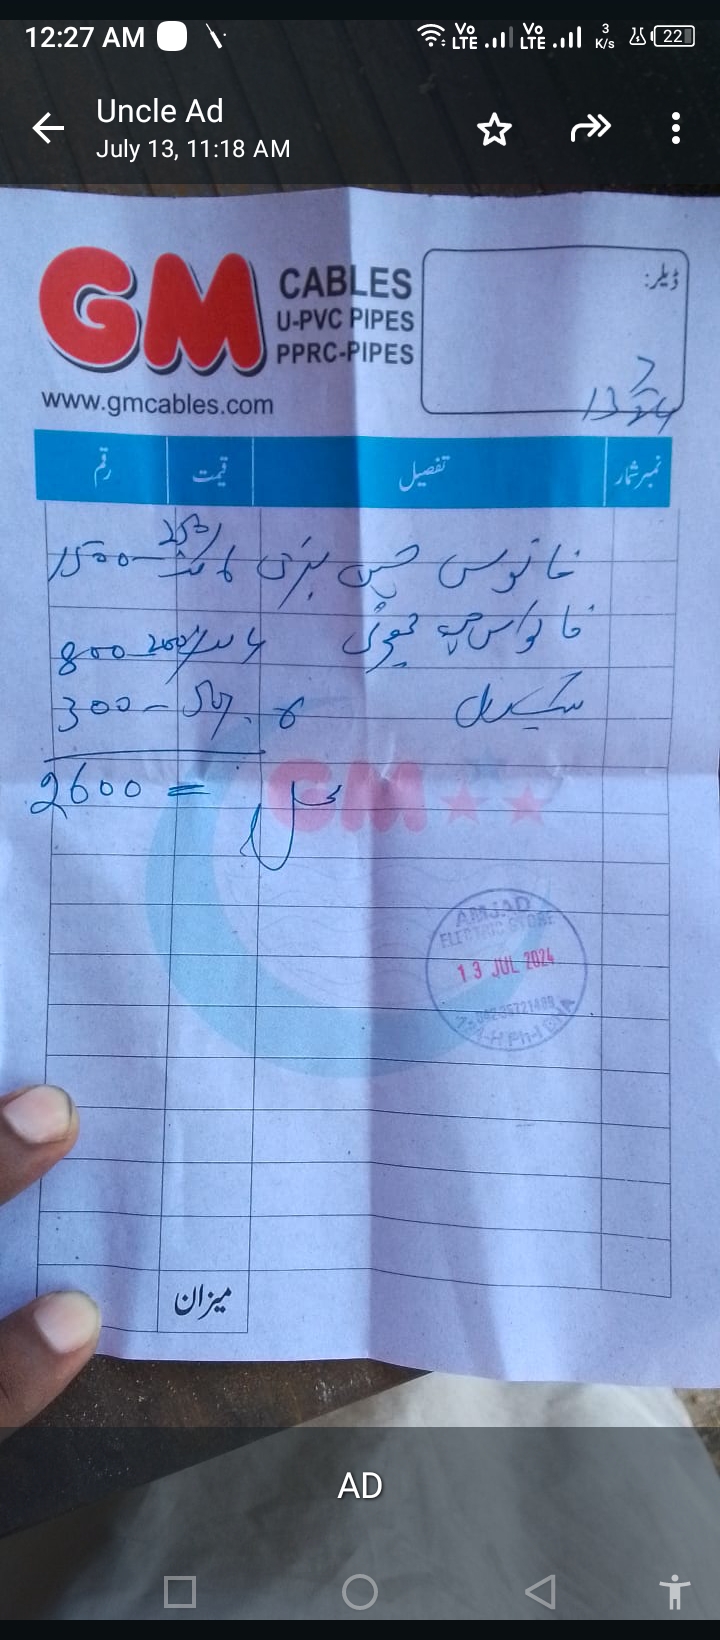 12:27 AM
Vo LTE Vo LTE 3 K/s 22
Uncle Ad
July 13, 11:18 AM
GM
CABLES
U-PVC PIPES
PPRC-PIPES
www.gmcables.com
ڈیلر:
13 7 24
نمبر شمار تفصیل قیمت رقم
فانوس بڑی 6 250/ 1500
فانوس چھوٹی 4 200/ 800
6 50/ 300
2600 =
GM
AMJAD
ELECTRIC STORE
13 JUL 2024
میزان
AD